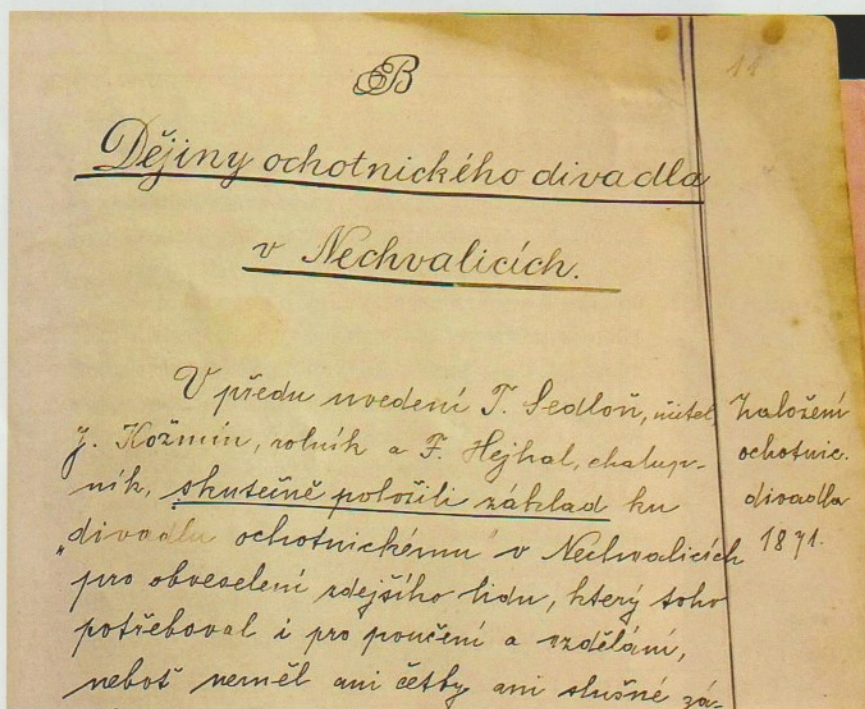 B
11
Dějiny ochotnického divadla
v Nechvalicích.
V předu uvedení T. Sedloň, učitel,
J. Kožmín, rolník a F. Hejhal, chalup-
ník, skutečně položili základ ku
„divadlu ochotnickému" v Nechvalicích
pro obveselení zdejšího lidu, který toho
potřeboval i pro poučení a vzdělání,
neboť neměl ani četby ani slušné zá-
Založení
ochotnic.
divadla
1871.